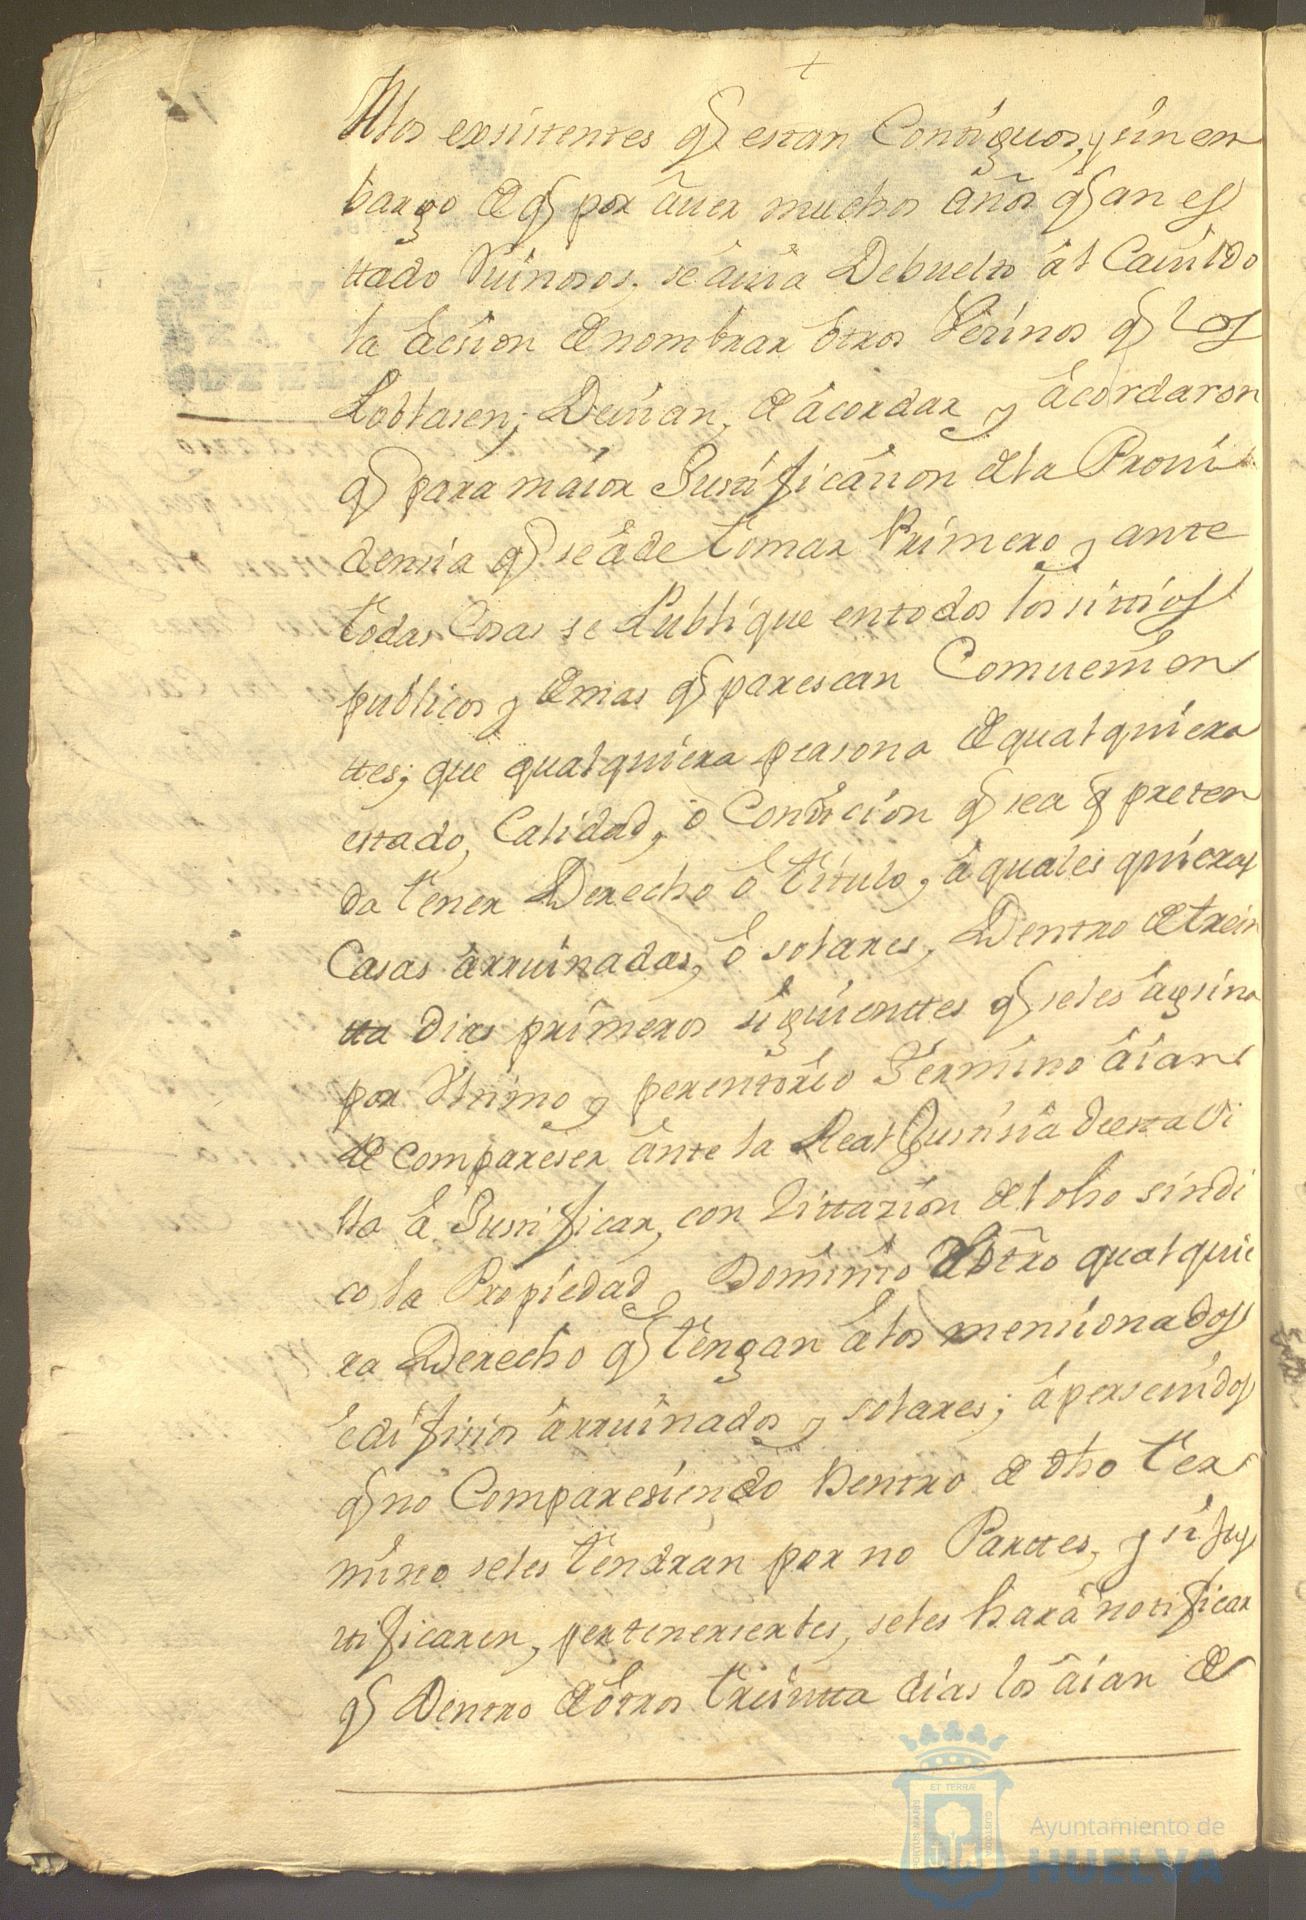 +
Alos exsistentes q estan Contiguos, y sin en
bargo de q por auer muchos años q an es
ttado Ruinosos, se auia Debuelto al Cauildo
la acsion de nombrar otros Vesinos q los
Loblasen; Deuian, de acordar y acordaron
q para maior Justificasion de la Proui
densia q se a de tomar Primero y ante
todas Cosas se Publique en todos los sitios
publicos y demas q parescan Comuenien
ttes; que qualquiera persona de qualquiera
estado, Calidad, o Condicion q sea q preten
da tener Derecho o titulo, a quales quieras
Casas arruinadas, o solares, Dentro de trein
tta dias primeros siguienttes q seles asigna
por Vltimo y perentorio Termino aian
de compareser ante la Real Justisia de esta Vi
lla a Justificar, con sittazion del dho sindi
co, la Propiedad y Dominio de otro qualquie
ra Derecho q tengan alos mensionados
edifisios arruinados y solares; aperseuidos
q no Comparesiendo Dentro de dho ter
mino seles tendran por no Parttes, y si jus
tificaren, pertenerserles, seles hara notificar
q Dentro de otros treintta dias los aian de
ET TERRÆ
PORTUS MARIS
CUSTODIA
Ayuntamiento de
HUELVA